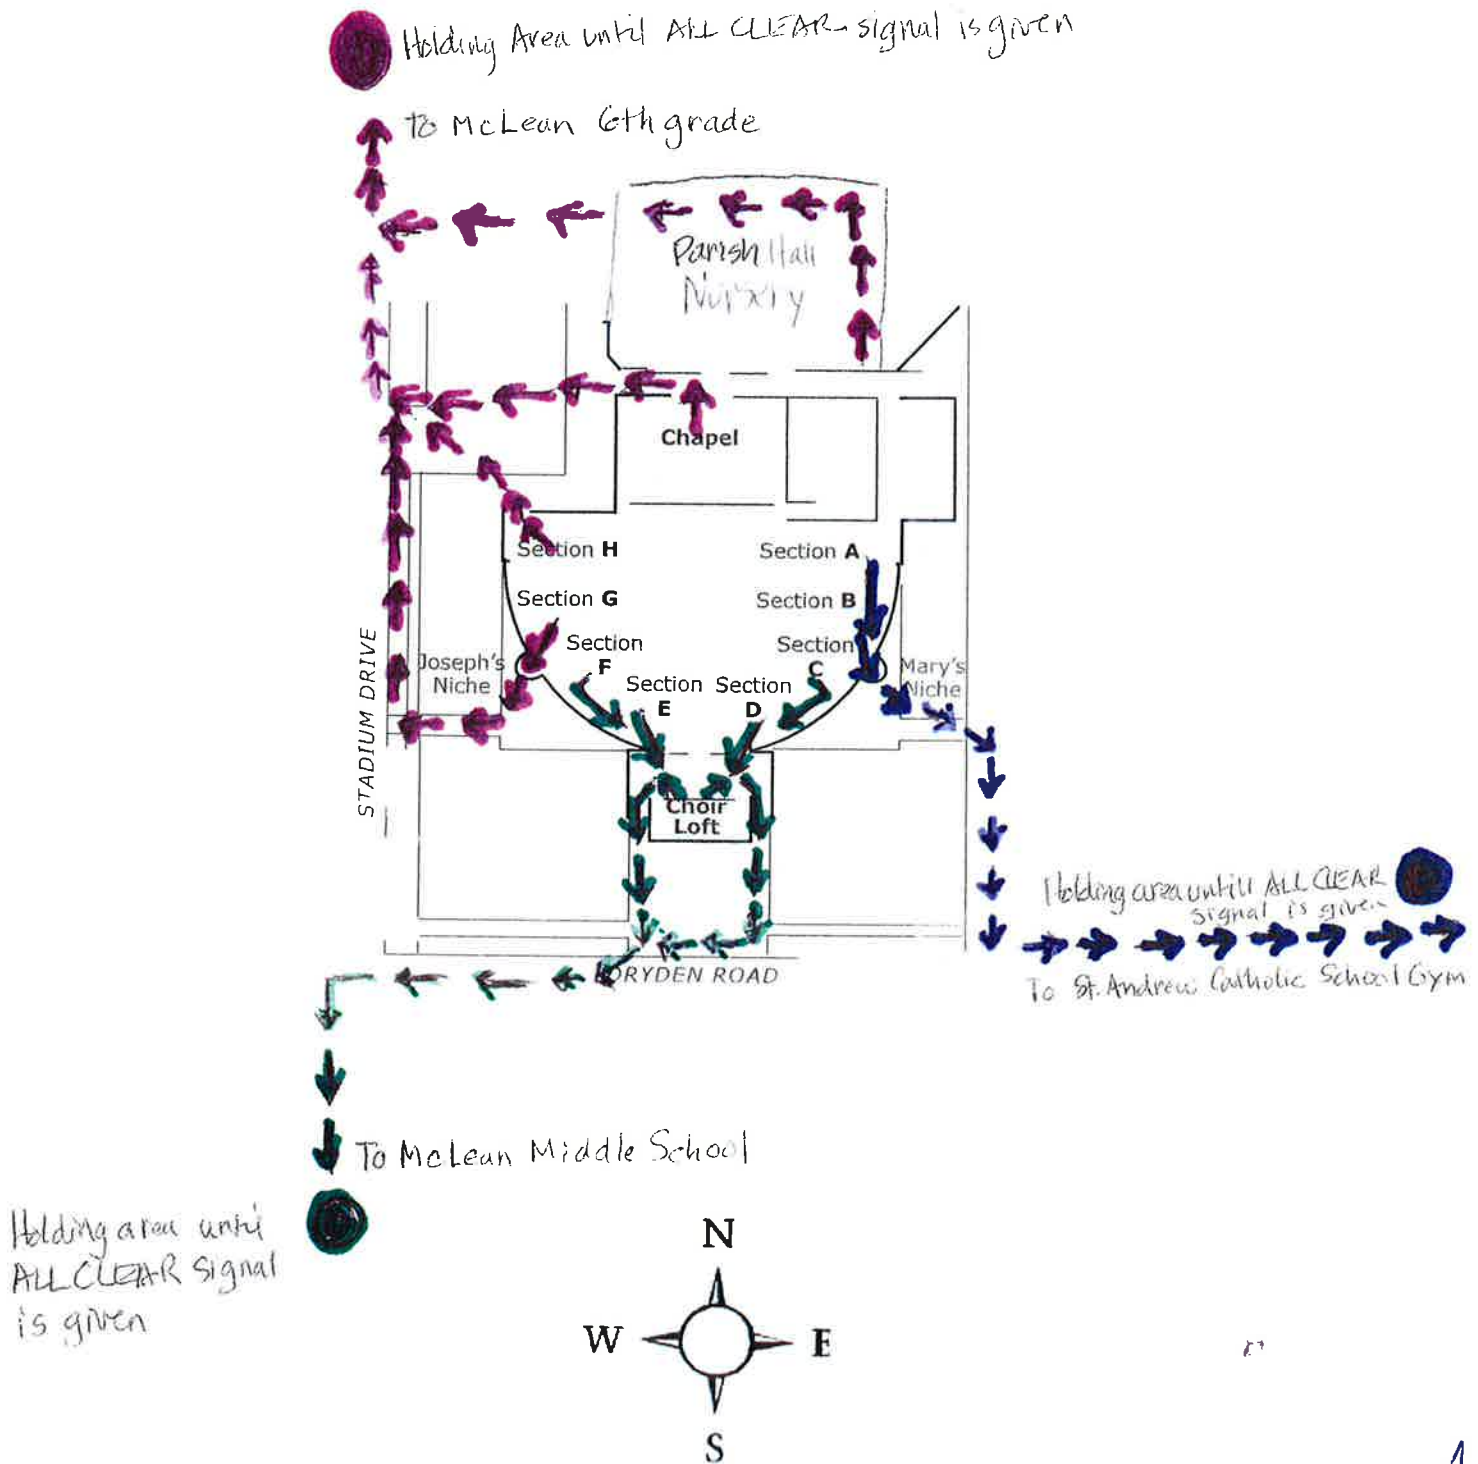 Holding Area until ALL CLEAR signal is given
to McLean 6th grade
Parish Hall
Nursery
Chapel
Section H
Section A
Section G
Section B
Section
F
Section
C
Joseph's
Niche
Mary's
Niche
Section
E
Section
D
STADIUM DRIVE
Choir
Loft
Holding area untill ALL CLEAR
signal is given
DRYDEN ROAD
To St. Andrew Catholic School Gym
To McLean Middle School
Holding area until
ALL CLEAR signal
is given
N
W
E
S